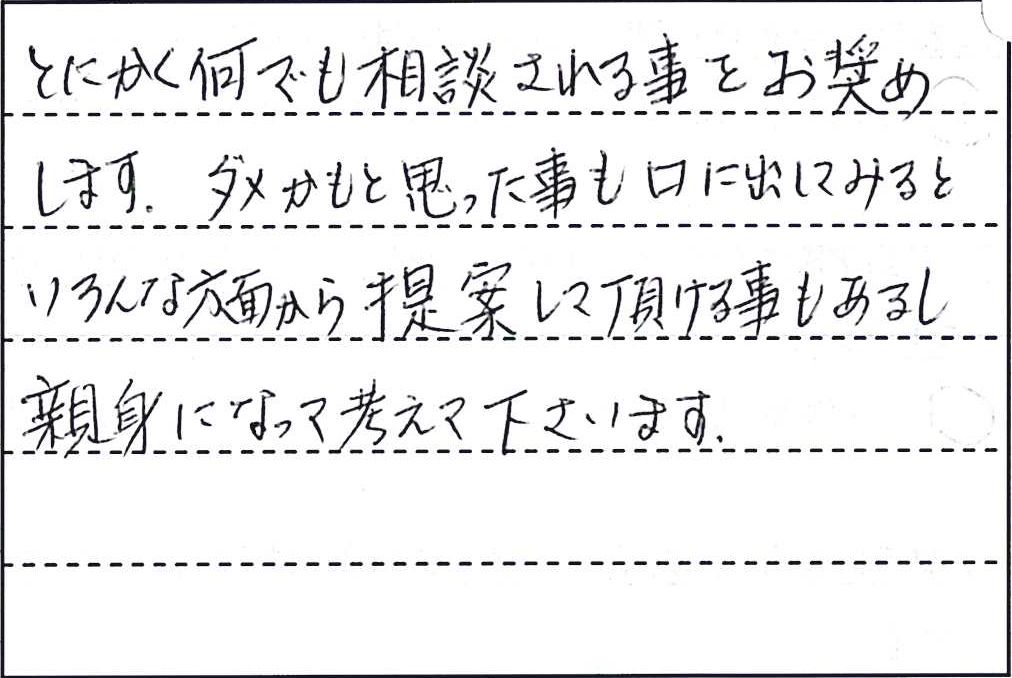 とにかく何でも相談される事をお奨め
します. ダメかもと思った事も口に出してみると
いろんな方面から提案して頂ける事もあるし
親身になって考えて下さいます.